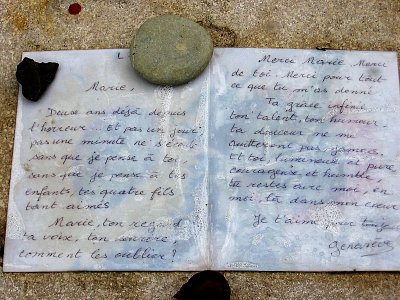 Marie,
Deux ans déjà depuis
l'horreur... Et pas un jour
pas une minute ne s'écoule
sans que je pense à toi,
sans que je pense à tes
enfants, tes quatre fils
tant aimés
Marie, ton regard
ta voix, ton sourire,
comment les oublier?
Merci Marie. Merci
de toi. Merci pour tout
ce que tu m'as donné
Ta grâce infinie,
ton talent, ton humour,
ta douceur ne me
quitteront pas, jamais.
Et toi, lumineuse et pure,
courageuse et humble
tu restes avec moi, en
moi, là dans mon cœur
Je t'aime pour toujours
Geneviève